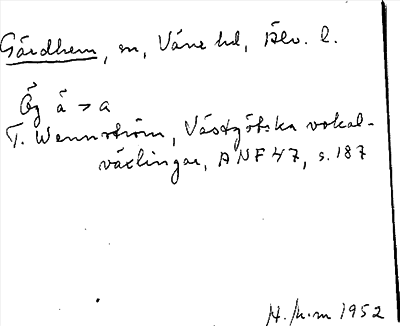 Gärdhem, sn, Väne hd, Älv. l.
Ög å > a
T. Wennström, Västgötska vokal-
växlingar, ANF 47, s. 187
1952